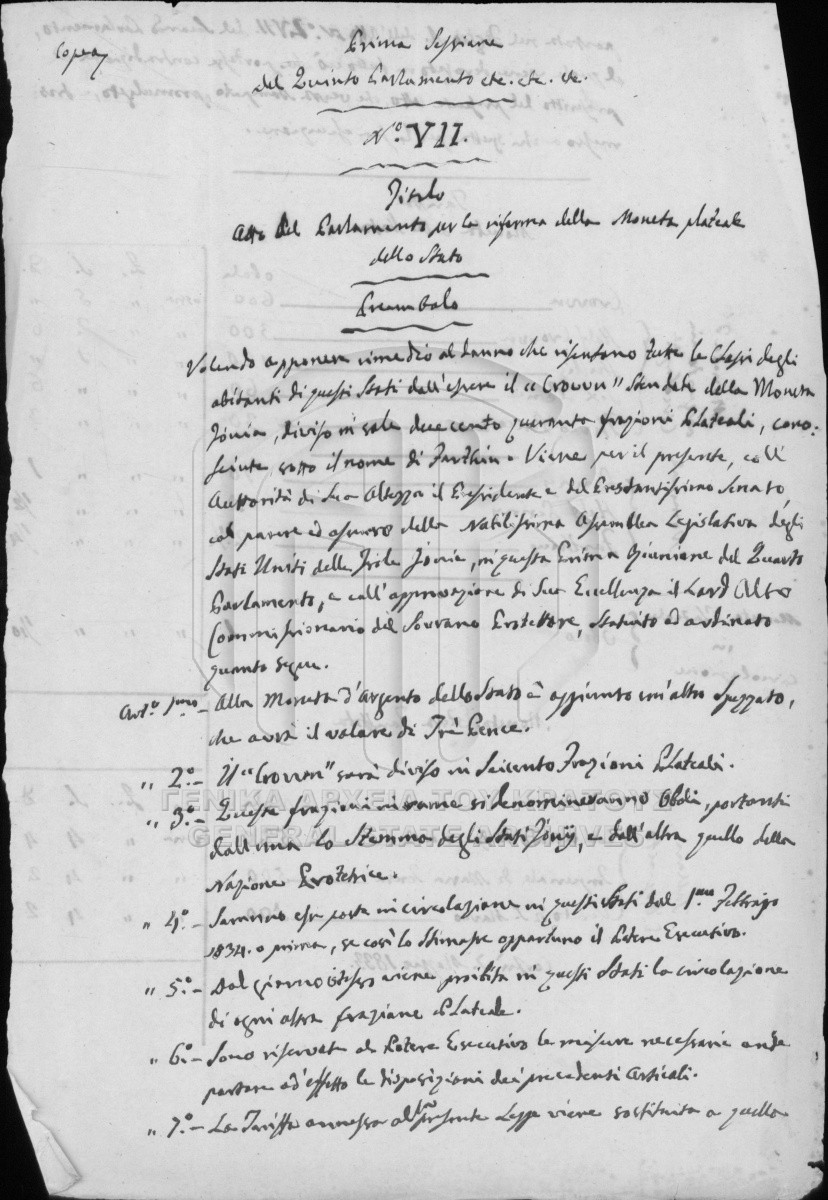 Copia
Prima Sessione
del Quinto Parlamento etc. etc. etc.
N.º VII.
Titolo
Atto del Parlamento per la riforma della Moneta plateale
dello Stato
Preambolo
Volendo apponere rimedio al danno che risentono tutte le Classi degli
abitanti di questi Stati dall'essere il "Crown" Stendale della Moneta
Jonia, diviso in sole duecento quaranta frazioni Plateali, cono-
sciute sotto il nome di Farthin. Viene per il presente, coll'
Auttorità di Sua Altezza il Presidente e del Prestantissimo Senato,
col parere ed assenso della Nobilissima Assemblea Legislativa degli
Stati Uniti delle Isole Jonie, in questa Prima Sessione del Quarto
Parlamento, e coll'approvazione di Sua Eccellenza il Lord Alto
Commissionario del Sovrano Protettore, Statuito ed ordinato
quanto segue.
Art.º 1.mo – Alla Moneta d'Argento dello Stato è aggiunto un'altro Spezzato,
che avrà il valore di Trè Pence.
" 2.º – Il "Crown" sarà diviso in Seicento Frazioni Plateali.
" 3.º – Queste frazioni in rame si denomineranno Oboli, portanti
dall'una lo Stemma degli Stati Jonij, e dall'altra quello della
Nazione Protetrice.
ΓΕΝΙΚΑ ΑΡΧΕΙΑ ΤΟΥ ΚΡΑΤΟΥΣ
GENERAL STATE ARCHIVES
" 4.º – Saranno esse poste in circolazione in questi Stati dal 1.mo Febbrajo
1834. o prima, se così lo Stimasse opportuno il Potere Esecutivo.
" 5.º – Dal giorno istesso viene proibita in questi Stati la circolazione
di ogni altra frazione Plateale.
" 6.º – Sono riservate al Potere Esecutivo le misure necessarie onde
portare ad'effetto le disposizioni dei precedenti Articoli.
" 7.º – La Tariffa annessa al presente Legge viene sostituita a quella